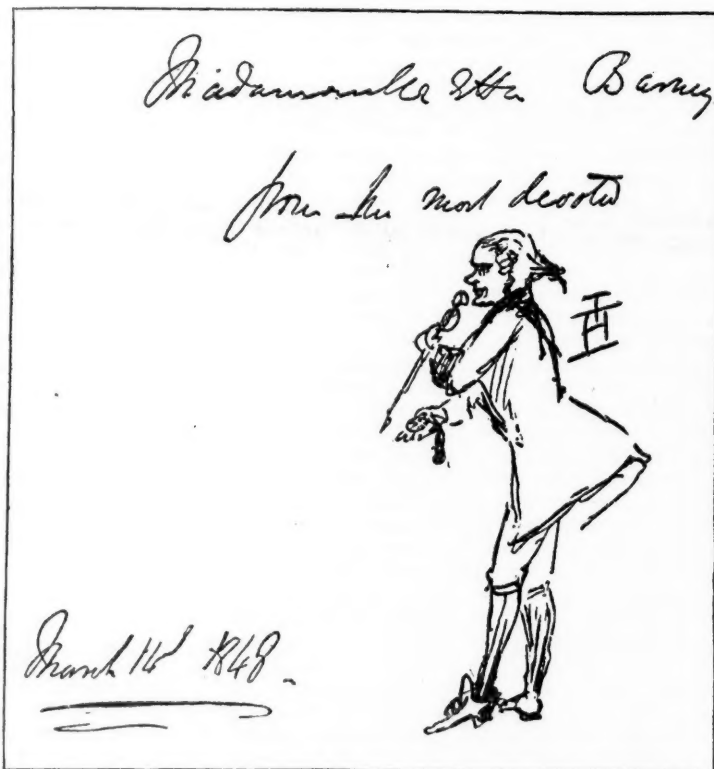 Madamoiselle Etta Barney
from her most devoted
March 14th 1848.